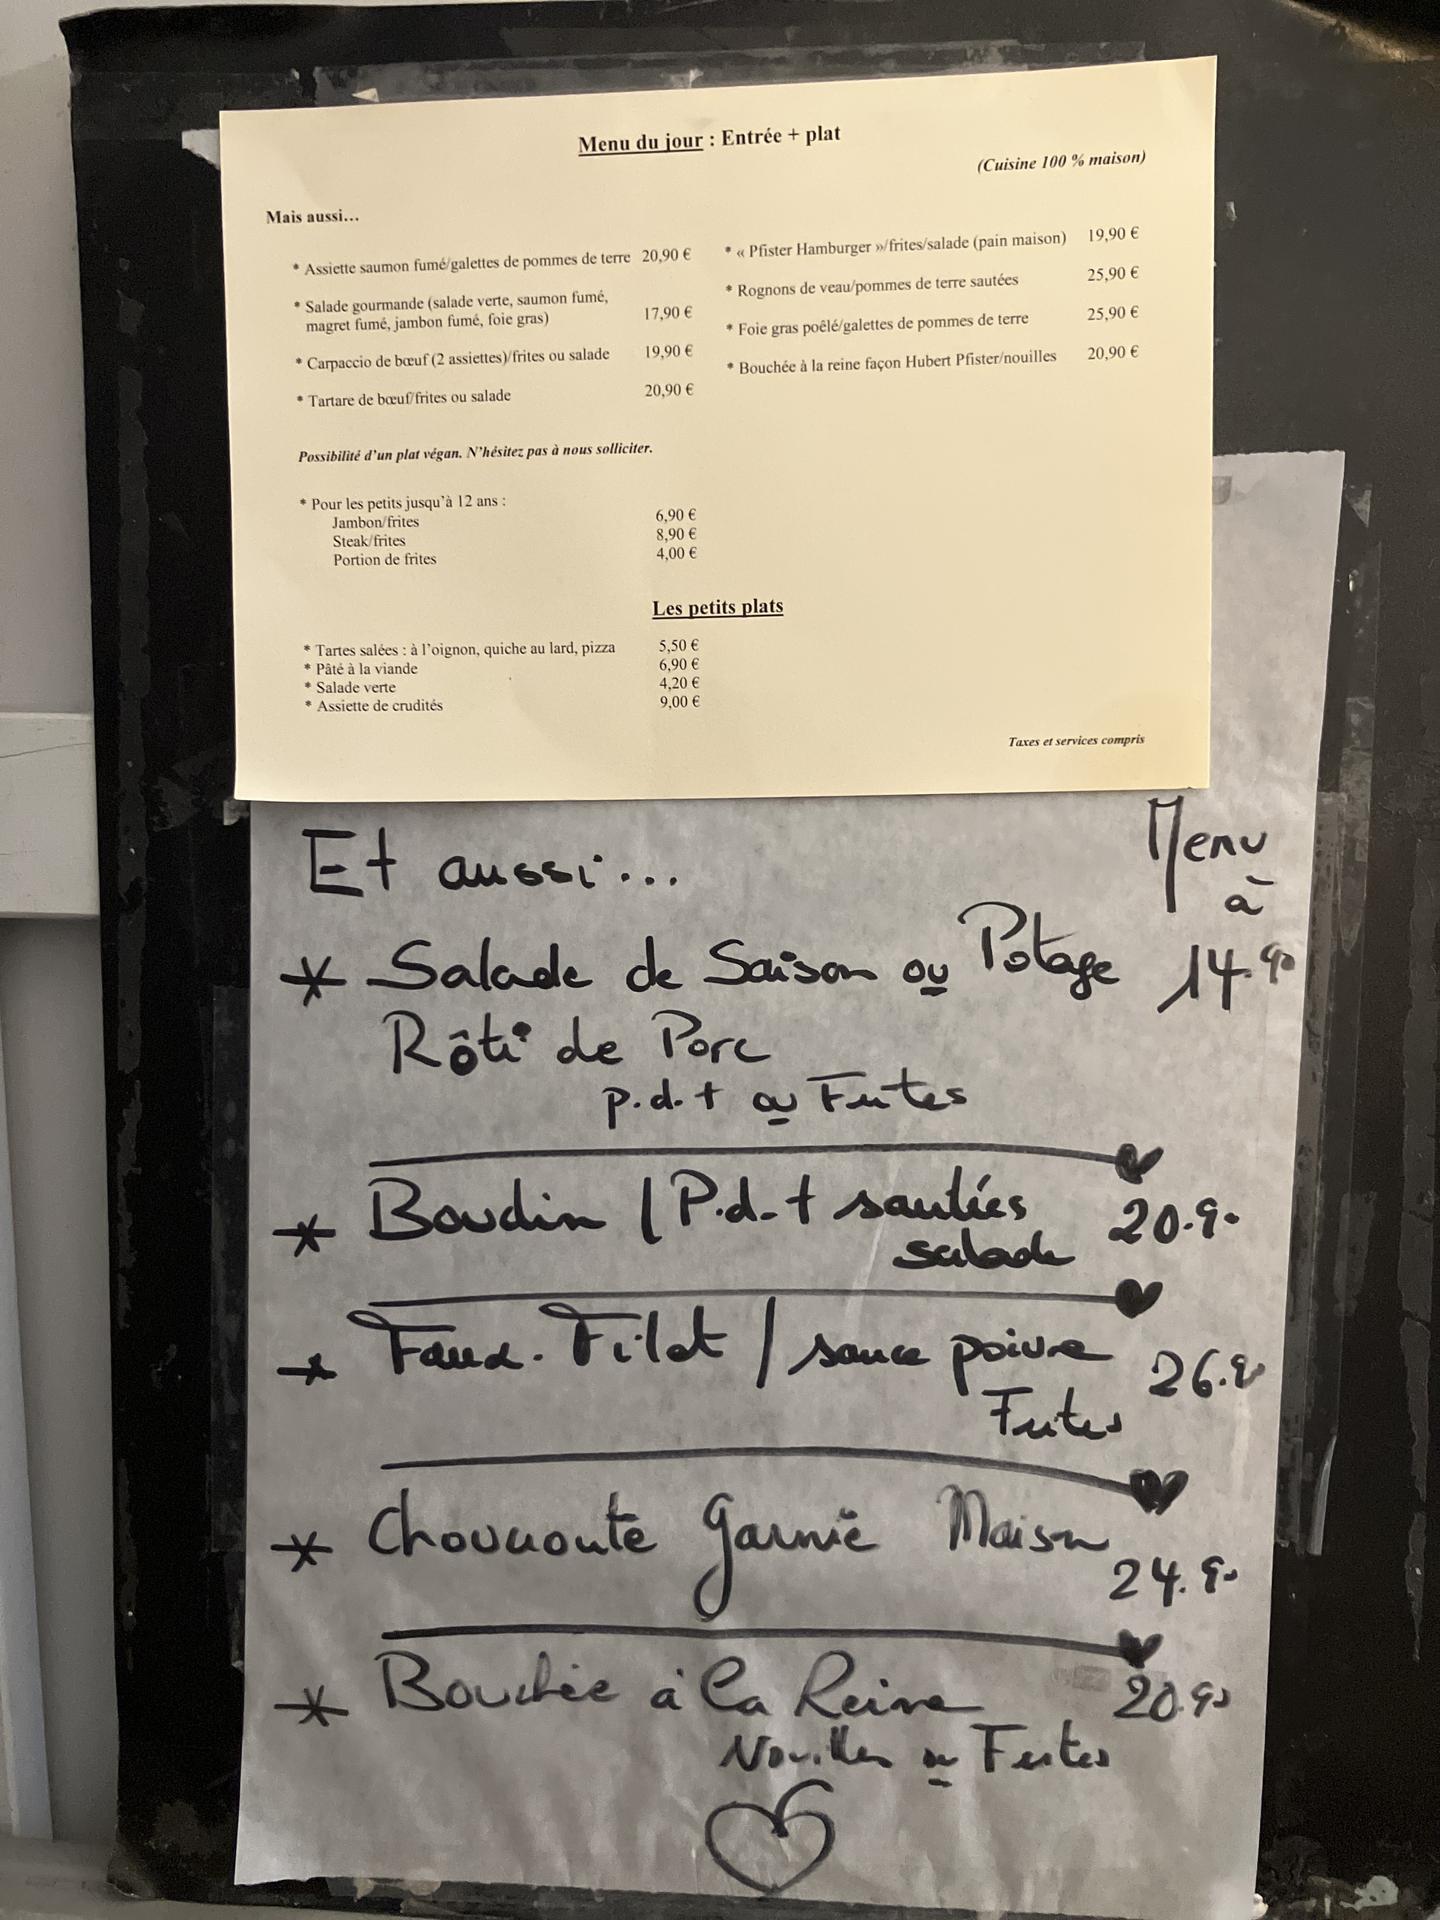 Menu du jour : Entrée + plat
(Cuisine 100 % maison)
Mais aussi…
* Assiette saumon fumé/galettes de pommes de terre 20,90 €
* Salade gourmande (salade verte, saumon fumé,
magret fumé, jambon fumé, foie gras) 17,90 €
* Carpaccio de bœuf (2 assiettes)/frites ou salade 19,90 €
* Tartare de bœuf/frites ou salade 20,90 €
* « Pfister Hamburger »/frites/salade (pain maison) 19,90 €
* Rognons de veau/pommes de terre sautées 25,90 €
* Foie gras poêlé/galettes de pommes de terre 25,90 €
* Bouchée à la reine façon Hubert Pfister/nouilles 20,90 €
Possibilité d’un plat végan. N’hésitez pas à nous solliciter.
* Pour les petits jusqu’à 12 ans :
Jambon/frites 6,90 €
Steak/frites 8,90 €
Portion de frites 4,00 €
Les petits plats
* Tartes salées : à l’oignon, quiche au lard, pizza 5,50 €
* Pâté à la viande 6,90 €
* Salade verte 4,20 €
* Assiette de crudités 9,00 €
Taxes et services compris
Et aussi...
Menu
à
* Salade de Saison ou Potage 14.90
Rôti de Porc
p.d.t ou Frites
* Boudin / P.d.t sautées 20.90
salade
* Faux-Filet / sauce poivre 26.90
Frites
* Choucroute garnie Maison
24.90
* Bouchée à la Reine 20.90
Nouilles ou Frites